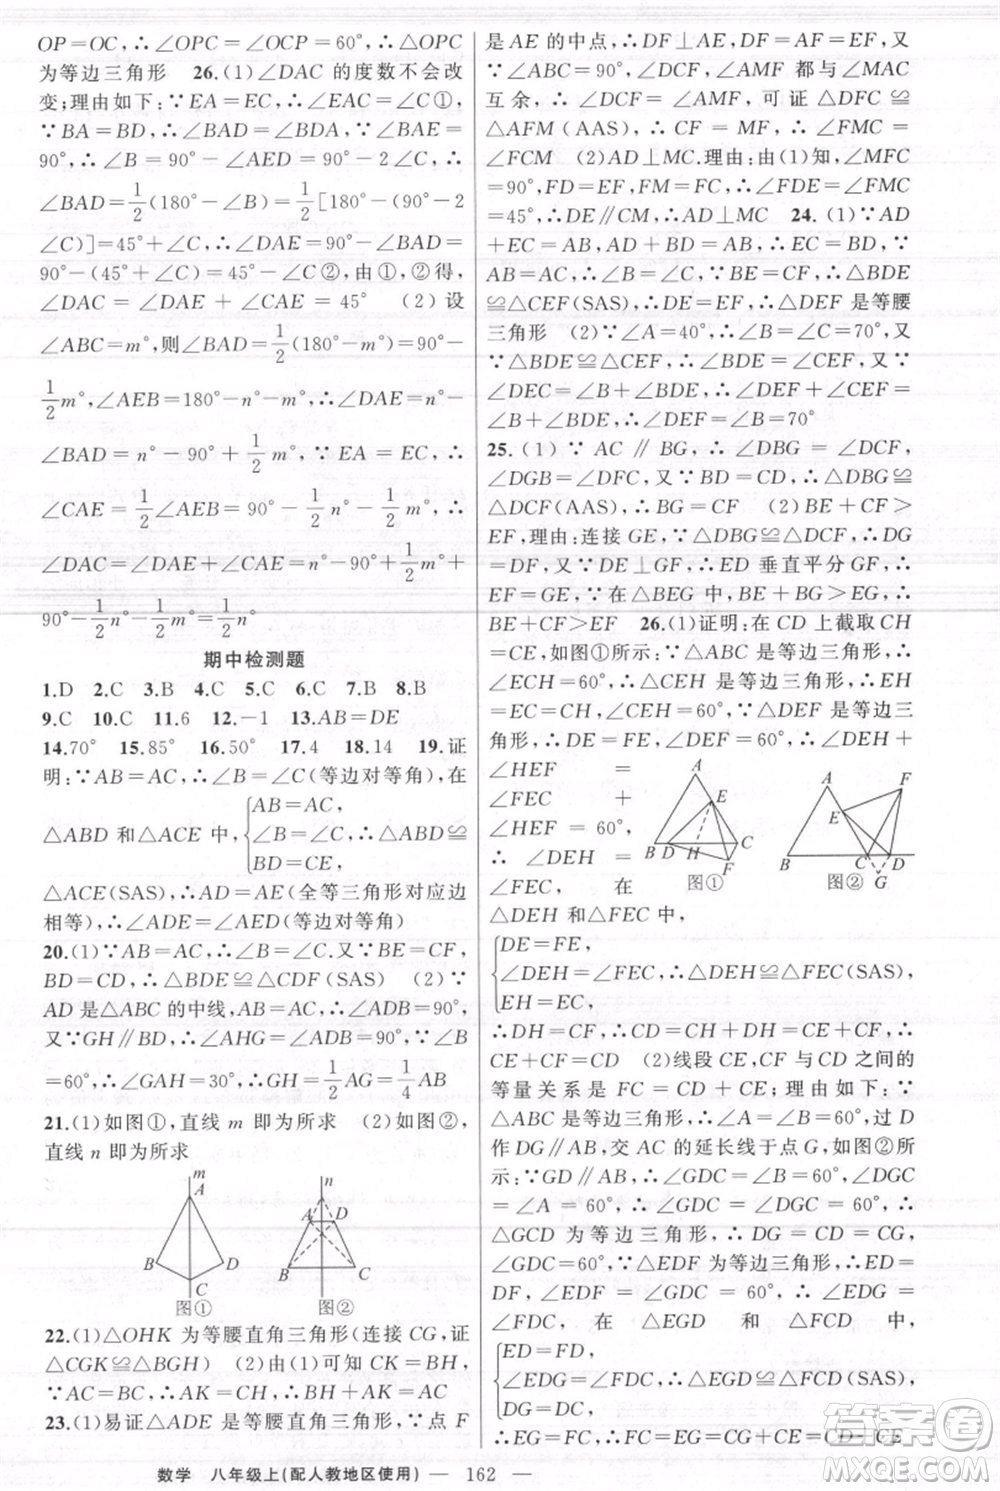 OP=OC,∴∠OPC=∠OCP=60°,∴△OPC
为等边三角形 26.(1)∠DAC 的度数不会改
变;理由如下:∵EA=EC,∴∠EAC=∠C①,
∵BA=BD,∴∠BAD=∠BDA,∵∠BAE=
90°,∴∠B=90°-∠AED=90°-2∠C,∴
∠BAD=1/2(180°-∠B)=1/2[180°-(90°-2
∠C)]=45°+∠C,∴∠DAE=90°-∠BAD=
90°-(45°+∠C)=45°-∠C②,由①,②得,
∠DAC=∠DAE+∠CAE=45° (2)设
∠ABC=m°,则∠BAD=1/2(180°-m°)=90°-
1/2m°,∠AEB=180°-n°-m°,∴∠DAE=n°-
∠BAD=n°-90°+1/2m°,∵EA=EC,∴
∠CAE=1/2∠AEB=90°-1/2n°-1/2m°,∴
∠DAC=∠DAE+∠CAE=n°-90°+1/2m°+
90°-1/2n°-1/2m°=1/2n°
期中检测题
1.D 2.C 3.B 4.C 5.C 6.C 7.B 8.B
9.C 10.C 11.6 12.-1 13.AB=DE
14.70° 15.85° 16.50° 17.4 18.14 19.证
明:∵AB=AC,∴∠B=∠C(等边对等角),在
△ABD 和△ACE 中,{AB=AC, ∠B=∠C, BD=CE, ∴△ABD≌
△ACE(SAS),∴AD=AE(全等三角形对应边
相等),∴∠ADE=∠AED(等边对等角)
20.(1)∵AB=AC,∴∠B=∠C.又∵BE=CF,
BD=CD,∴△BDE≌△CDF(SAS) (2)∵
AD 是△ABC 的中线,AB=AC,∴∠ADB=90°,
又∵GH∥BD,∴∠AHG=∠ADB=90°,∵∠B
=60°,∴∠GAH=30°,∴GH=1/2AG=1/4AB
21.(1)如图①,直线 m 即为所求 (2)如图②,
直线 n 即为所求
m
A
B
D
C
图①
n
A
D
B
C
图②
22.(1)△OHK 为等腰直角三角形(连接 CG,证
△CGK≌△BGH) (2)由(1)可知 CK=BH,
∵AC=BC,∴AK=CH,∴AK=CH=CB+BH
23.(1)易证△ADE 是等腰直角三角形,∵点 F
是 AE 的中点,∴DF⊥AE,DF=AF=EF,又
∵∠ABC=90°,∠DCF,∠AMF 都与∠MAC
互余,∴∠DCF=∠AMF,可证△DFC≌
△AFM(AAS),∴CF=MF,∴∠FMC=
∠FCM (2)AD⊥MC.理由:由(1)知,∠MFC
=90°,FD=EF,FM=FC,∴∠FDE=∠FMC=
45°,∴DE∥CM,∴AD⊥MC 24.(1)∵AD
+EC=AB,∴BD=EC,又∵BE=CF,∵
AB=AC,∴∠B=∠C,∴△BDE
≌△CEF(SAS),∴DE=EF,∴△DEF 是等腰
三角形 (2)∵∠A=40°,∴∠B=∠C=70°,又
∵△BDE≌△CEF,∴∠BDE=∠CEF,又∵
∠DEC=∠B+∠BDE,∴∠DEF+∠CEF=
∠B+∠BDE,∴∠DEF=∠B=70°
25.(1)∵AC∥BG,∴∠DBG=∠DCF,
∠DGB=∠DFC,又∵BD=CD,∴△DBG≌
△DCF(AAS),∴BG=CF (2)BE+CF>
EF,理由:连接 GE,∵△DBG≌△DCF,∴DG
=DF,又∵DE⊥GF,∴ED 垂直平分 GF,∴
EF=GE,∵在△BEG 中,BE+BG>EG,∴
BE+CF>EF 26.(1)证明:在 CD 上截取 CH
=CE,如图①所示:∵△ABC 是等边三角形,∴
∠ECH=60°,∴△CEH 是等边三角形,∴EH
=EC=CH,∠CEH=60°,∵△DEF 是等边三
角形,∴DE=FE,∠DEF=60°,∴∠DEH+
∠HEF =
∠FEC +
∠HEF=60°,
∴∠DEH=
∠FEC, 在
A
E
B
D
H
C
F
图①
A
F
E
B
C
D
G
图②
△DEH 和△FEC 中,
{DE=FE,
∠DEH=∠FEC,∴△DEH≌△FEC(SAS),
EH=EC,
∴DH=CF,∴CD=CH+DH=CE+CF,∴
CE+CF=CD (2)线段 CE,CF 与 CD 之间的
等量关系是 FC=CD+CE;理由如下:∵
△ABC 是等边三角形,∴∠A=∠B=60°,过 D
作 DG∥AB,交 AC 的延长线于点 G,如图②所
示:∵GD∥AB,∴∠GDC=∠B=60°,∠DGC
=∠A=60°,∴∠GDC=∠DGC=60°,∴
△GCD 为等边三角形,∴DG=CD=CG,
∠GDC=60°,∵△EDF 为等边三角形,∴ED=
DF,∠EDF=∠GDC=60°,∴∠EDG=
∠FDC, 在△EGD 和△FCD 中,
{ED=FD,
∠EDG=∠FDC,∴△EGD≌△FCD(SAS),
DG=DC,
∴EG=FC,∴FC=EG=CG+CE=CD+CE
数学 八年级上(配人教地区使用) — 162 —
答案圈
MXQE.COM